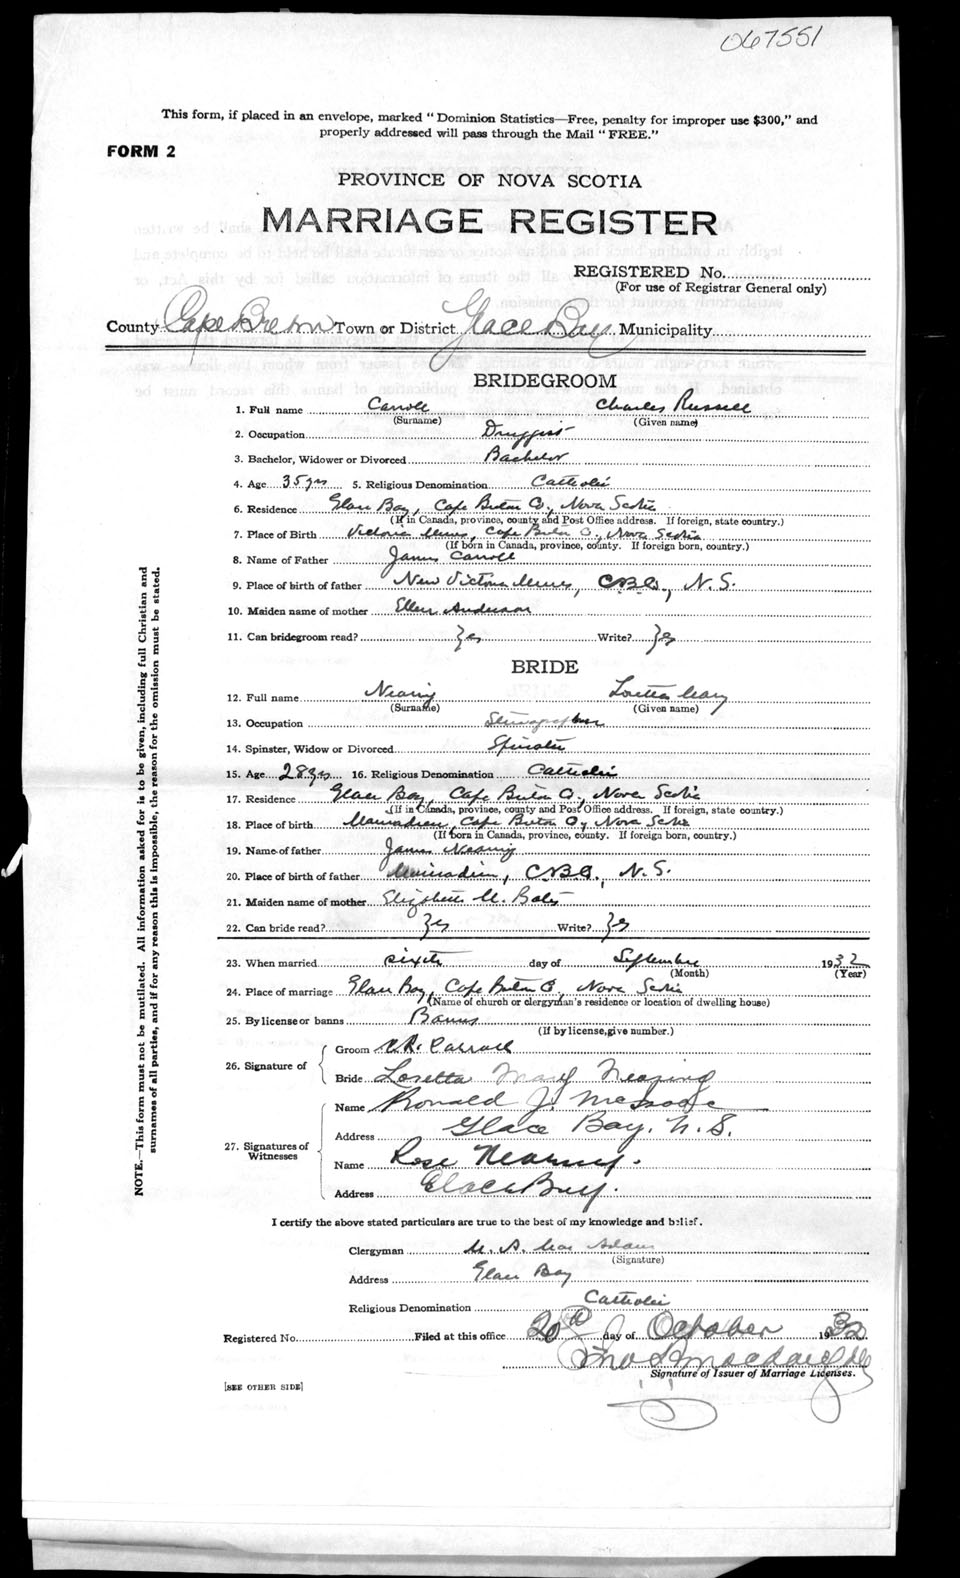 067551
This form, if placed in an envelope, marked "Dominion Statistics—Free, penalty for improper use $300," and
properly addressed will pass through the Mail "FREE."
FORM 2
PROVINCE OF NOVA SCOTIA
MARRIAGE REGISTER
REGISTERED No.
(For use of Registrar General only)
County Cape Breton Town or District Glace Bay Municipality
BRIDEGROOM
1. Full name Carroll Charles Russell
(Surname) (Given name)
2. Occupation Druggist
3. Bachelor, Widower or Divorced Bachelor
4. Age 35 yrs 5. Religious Denomination Catholic
6. Residence Glace Bay, Cape Breton Co., Nova Scotia
(If in Canada, province, county and Post Office address. If foreign, state country.)
7. Place of Birth Victoria Mines, Cape Breton Co., Nova Scotia
(If born in Canada, province, county. If foreign born, country.)
8. Name of Father James Carroll
9. Place of birth of father New Victoria Mines, C.B.Co., N.S.
10. Maiden name of mother Ellen Anderson
11. Can bridegroom read? Yes Write? Yes
BRIDE
12. Full name Nearing Loretta Mary
(Surname) (Given name)
13. Occupation Stenographer
14. Spinster, Widow or Divorced Spinster
15. Age 28 yrs 16. Religious Denomination Catholic
17. Residence Glace Bay, Cape Breton Co., Nova Scotia
(If in Canada, province, county and Post Office address. If foreign, state country.)
18. Place of birth Mainadieu, Cape Breton Co, Nova Scotia
(If born in Canada, province, county. If foreign born, country.)
19. Name of father James Nearing
20. Place of birth of father Mainadieu, C.B.Co., N.S.
21. Maiden name of mother Elizabeth M. Bates
22. Can bride read? Yes Write? Yes
23. When married sixth day of September 1932
(Month) (Year)
24. Place of marriage Glace Bay, Cape Breton Co, Nova Scotia
(Name of church or clergyman's residence or location of dwelling house)
25. By license or banns Banns
(If by license, give number.)
26. Signature of
Groom C.R. Carroll
Bride Loretta Mary Nearing
27. Signatures of Witnesses
Name Ronald J.
Address Glace Bay. N.S.
Name Rose Nearing.
Address Glace Bay.
I certify the above stated particulars are true to the best of my knowledge and belief.
Clergyman M. A. Mac Adam
(Signature)
Address Glace Bay
Religious Denomination Catholic
Registered No. Filed at this office 20th day of October 1932
Signature of Issuer of Marriage Licenses.
[SEE OTHER SIDE]
NOTE.—This form must not be mutilated. All information asked for is to be given, including full Christian and
surnames of all parties, and if for any reason this is impossible, the reason for the omission must be stated.